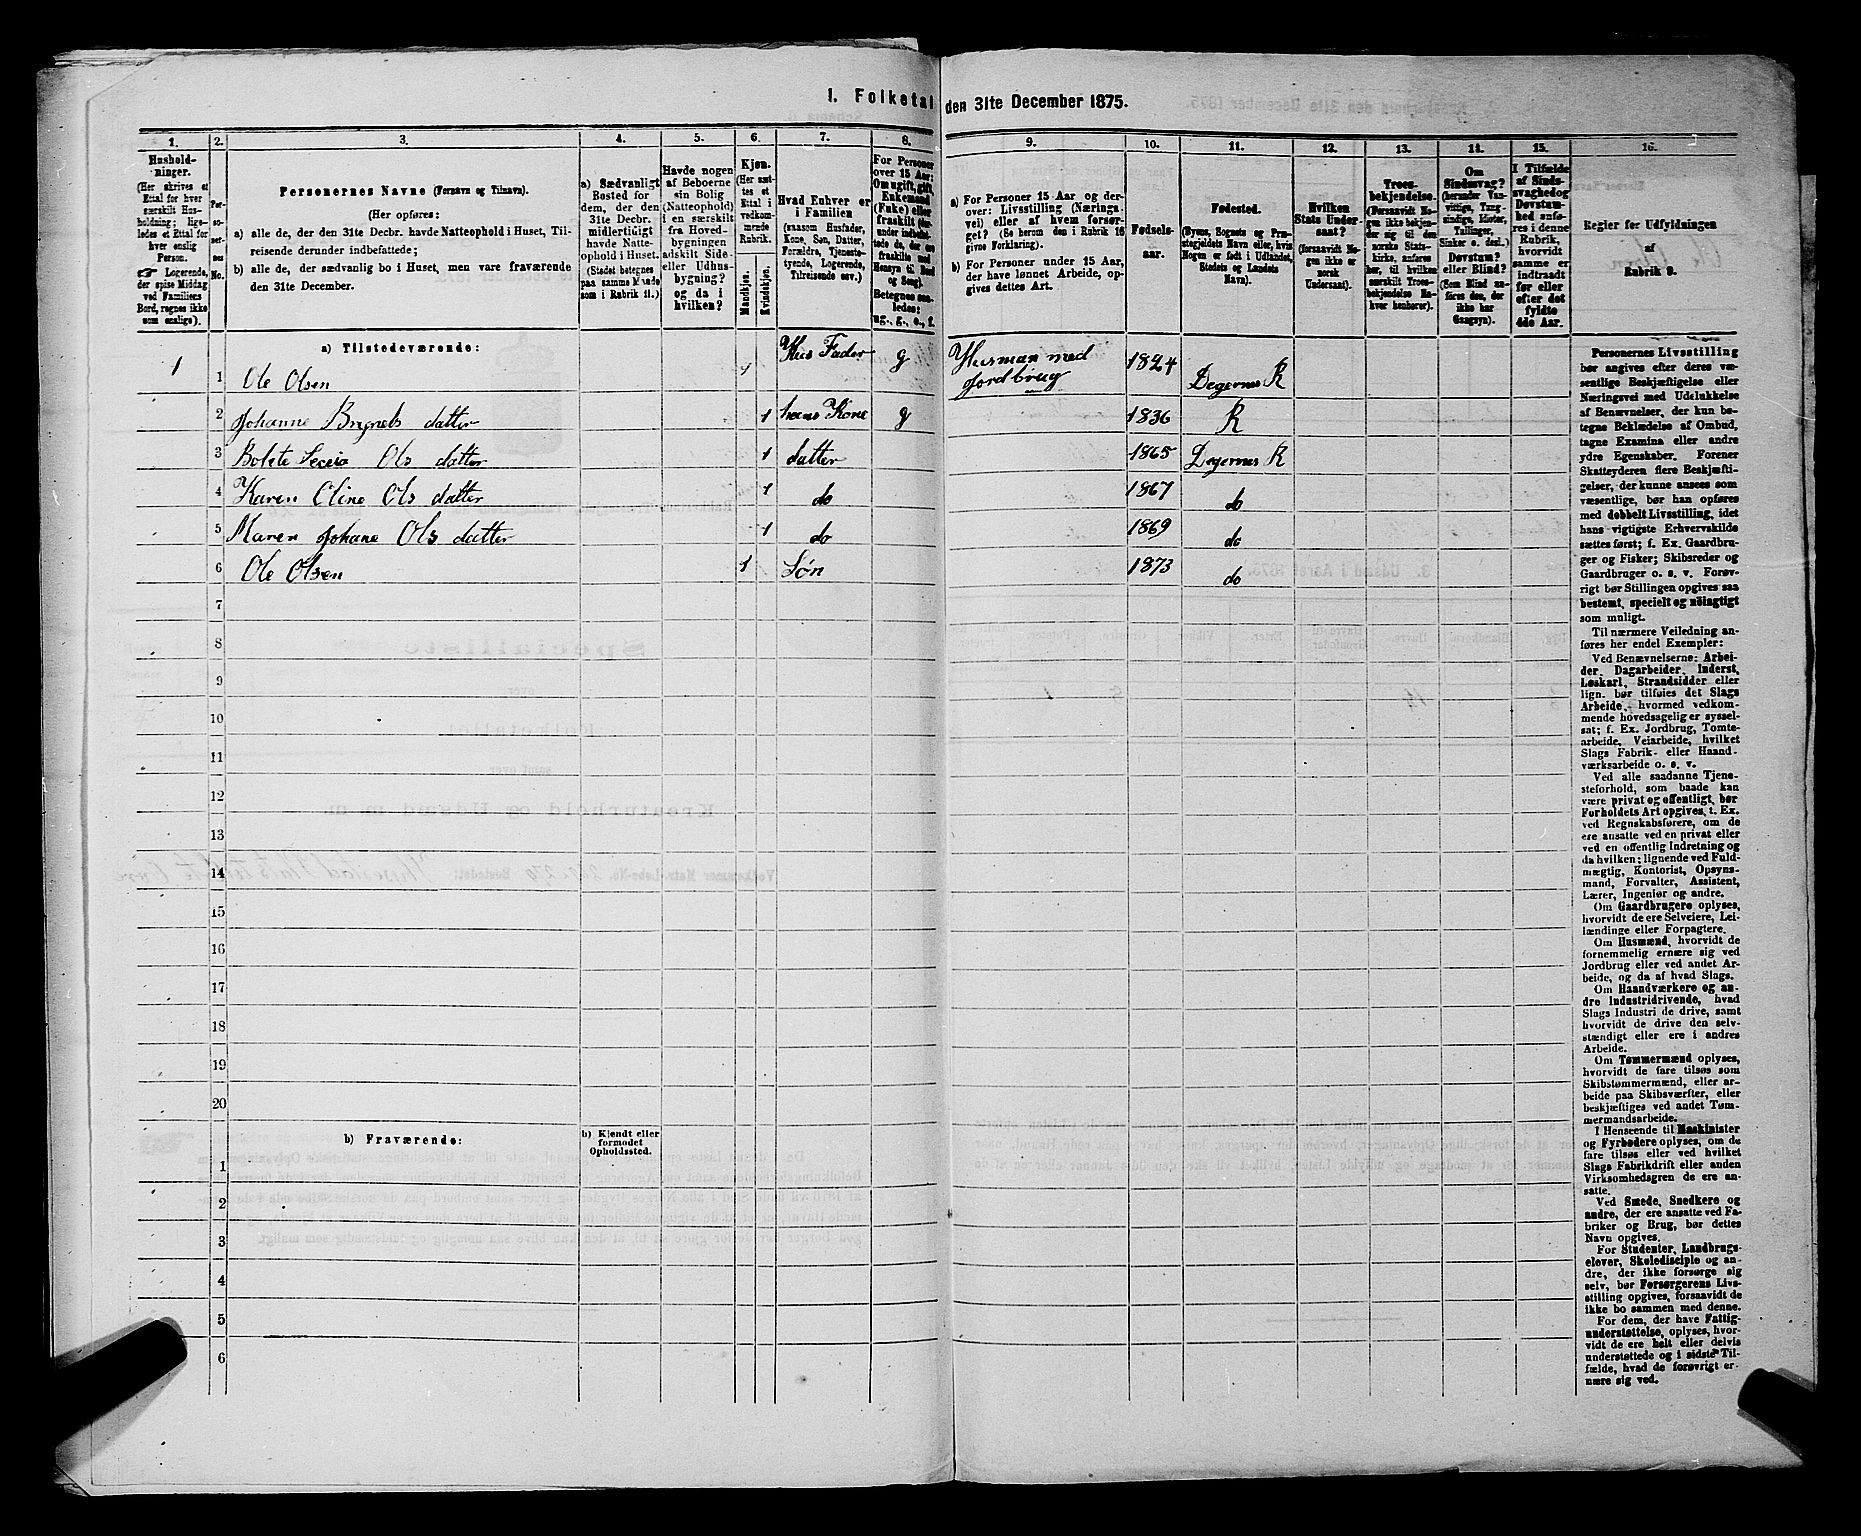 1. Folketal den 31te December 1875.
1. 2. 3. 4. 5. 6. 7. 8. 9. 10. 11. 12. 13. 14. 15. 16.
Hushold-
ninger.
(Her skrives et
Ettal for hver
særskilt Hus-
holdning; lige-
ledes et Ettal for
hver enslig
Person.
☞ Logerende,
der spise Middag
ved Familiens
Bord, regnes ikke
som enslige).
Per-
so-
ner-
nes
No.
Personernes Navne (Fornavn og Tilnavn).
(Her opføres:
a) alle de, der den 31te Decbr. havde Natteophold i Huset, Til-
reisende derunder indbefattede;
b) alle de, der sædvanlig bo i Huset, men vare fraværende
den 31te December.
a) Sædvanligt
Bosted for
dem, der den
31te Decbr.
midlertidigt
havde Natte-
ophold i Huset.
(Stedet betegnes
paa samme Maade
som i Rubrik 11.)
Havde nogen
af Beboerne
sin Bolig
(Natteophold)
i en særskilt
fra Hoved-
bygningen
adskilt Side-
eller Udhus-
bygning?
og da i
hvilken?
Kjøn.
(Her sæt-
tes et
Ettal i
vedkom-
mende
Rubrik.
Mandkjøn.
Kvindekjøn.
Hvad Enhver er
i Familien
(saasom Husfader,
Kone, Søn, Datter,
Forældre, Tjeneste-
tyende, Logerende,
Tilreisende osv.)
For Personer
over 15 Aar:
Om ugift, gift,
Enkemand
(Enke) eller
fraskilt
Betegnes saa-
ledes:
ug., g., e., f.
a) For Personer 15 Aar og der-
over: Livsstilling (Nærings-
vei) eller af hvem forsør-
get? (Se herom den i Rubrik 16
givne Forklaring).
b) For Personer under 15 Aar,
der have lønnet Arbeide, op-
gives dettes Art.
Fødsels-
aar.
Fødested.
(Byens, Sognets og Præ-
stegjeldets Navn eller, hvis
Nogen er født i Udlandet,
Stedets og Landets
Navn).
Hvilken
Stats Under-
saat?
(forsaavidt No-
gen ikke er
norsk
Undersaat).
Troes-
bekjendelse.
(Forsaavidt No-
gen ikke bekjen-
der sig til den
norske Stats-
kirke, anføres
her, til hvilken
særskilt Troes-
bekjendelse En-
hver henhører).
Om
Sindssvag?
(herunder Van-
vittige, Tung-
sindige, Idioter,
Tullinger,
Sinker o. desl.)
Døvstum?
eller Blind?
(Som Blind an-
føres den, der
ikke har
Gangsyn).
I Tilfælde
af Sinds-
svaghed og
Døvstum-
hed anfø-
res i denne
Rubrik,
hvorvidt
samme er
indtraadt
før eller
efter det
fyldte
4de Aar.
Regler for Udfyldningen
af
Rubrik 9.
a) Tilstedeværende:
1 1 Ole Olsen 1 Hus Fader g Husman med Jordbrug 1824 Degernes R
2 Johanne Brynels datter 1 hans Kone g 1836 R
3 Bolete Ols datter 1 datter 1865 Degernes R
4 Karen Oline Ols datter 1 do 1867 do
5 Maren Johane Ols datter 1 do 1869 do
6 Ole Olsen 1 Søn 1873 do
7
8
9
10
11
12
13
14
15
16
17
18
19
20
b) Fraværende:
b) Kjendt eller
formodet
Opholdssted.
1
2
3
4
5
6
Personernes Livsstilling
bør angives efter deres væ-
sentlige Beskjæftigelse eller
Næringsvei med Udelukkelse
af Benævnelser, der kun be-
tegne Beklædelse af Ombud,
tagne Examina eller andre
ydre Egenskaber. Forener
Skatteyderen flere Beskjæfti-
gelser, der kunne ansees som
væsentlige, bør han opføres
med dobbelt Livsstilling, idet
hans vigtigste Erhvervskilde
sættes først; f. Ex. Gaardbru-
ger og Fisker; Skibsreder og
Gaardbruger o. s. v. Forøv-
rigt bør Stillingen opgives saa
bestemt, specielt og nøiagtigt
som muligt.
Til nærmere Veiledning an-
føres her endel Exempler:
Ved Benævnelserne: Arbei-
der, Dagarbeider, Inderst,
Løskarl, Strandsidder eller
lign. bør tilføies det Slags
Arbeide, hvormed vedkom-
mende hovedsagelig er syssel-
sat; f. Ex. Jordbrug, Tomte-
arbeide, Veiarbeide, hvilket
Slags Fabrik- eller Haand-
værksarbeide o. s. v.
Ved alle saadanne Tjene-
steforhold, som baade kan
være privat og offentligt, bør
Forholdets Art opgives, t. Ex.
ved Regnskabsførere, om de
ere ansatte ved en privat eller
ved en offentlig Indretning og
da hvilken; lignende ved Fuld-
mægtig, Kontorist, Opsyns-
mand, Forvalter, Assistent,
Lærer, Ingeniør og andre.
Om Gaardbrugere oplyses,
hvorvidt de ere Selveiere, Lei-
lændinge eller Forpagtere.
Om Husmænd, hvorvidt de
fornemmelig ernære sig ved
Jordbrug eller ved andet Ar-
beide, og da af hvad Slags.
Om Haandværkere og an-
dre Industridrivende, hvad
Slags Industri de drive, samt
hvorvidt de drive den selv-
stændigt eller ere i andres
Arbeide.
Om Tømmermænd oplyses,
hvorvidt de fare tilsøs som
Skibstømmermænd, eller ar-
beide paa Skibsværfter, eller
beskjæftiges ved andet Tøm-
mermandsarbeide.
I Henseende til Maskinister
og Fyrbødere oplyses, om de
fare tilsøs eller ved hvilket
Slags Fabrikdrift eller anden
Virksomhedsgren de ere an-
satte.
Ved Smede, Snedkere og
andre, der ere ansatte ved Fa-
briker og Brug, bør dettes
Navn opgives.
For Studenter, Landbrugs-
elever, Skoledisciple og an-
dre, der ikke forsørge sig
selv, bør Forsørgerens Livs-
stilling opgives, forsaavidt de
ikke bo sammen med denne.
For dem, der have Fattig-
understøttelse, oplyses, hvor-
vidt de ere helt eller delvis
understøttede og i sidste Til-
fælde, hvad de forøvrigt er-
nære sig ved.